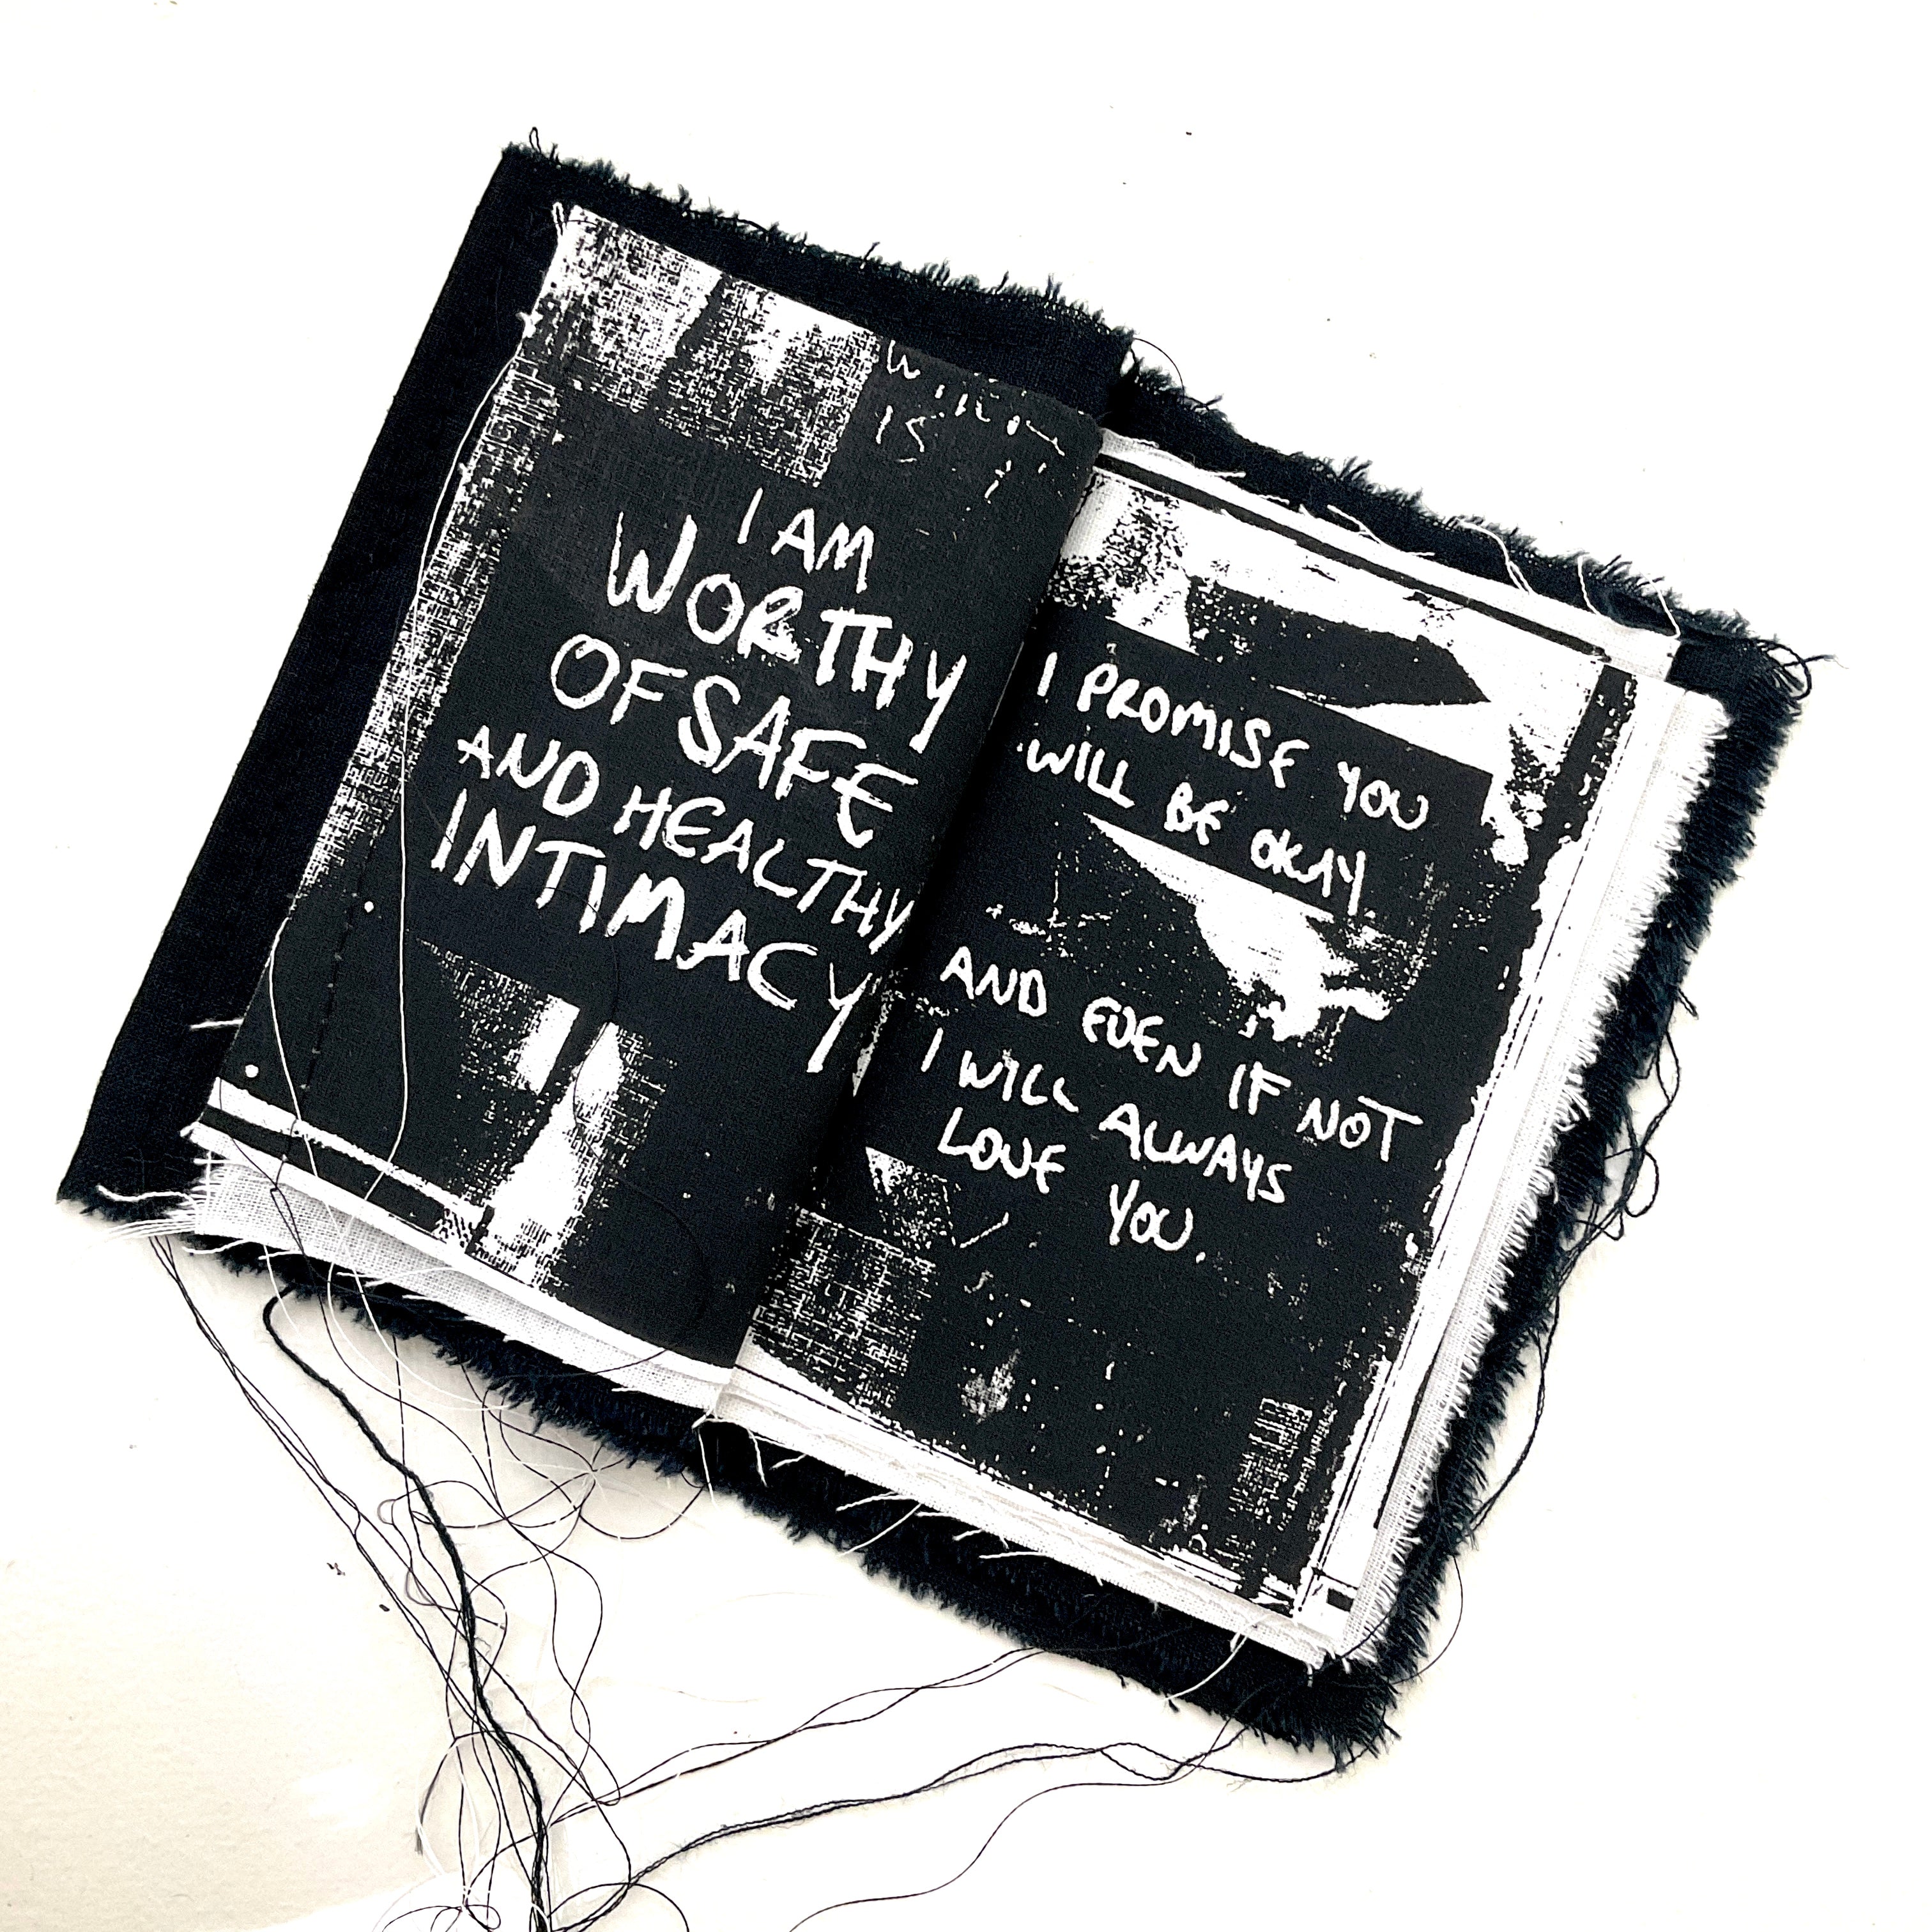 IS
I AM
WORTHY
OF SAFE
AND HEALTHY
INTIMACY
I PROMISE YOU
WILL BE OKAY
AND EVEN IF NOT
I WILL ALWAYS
LOVE YOU.